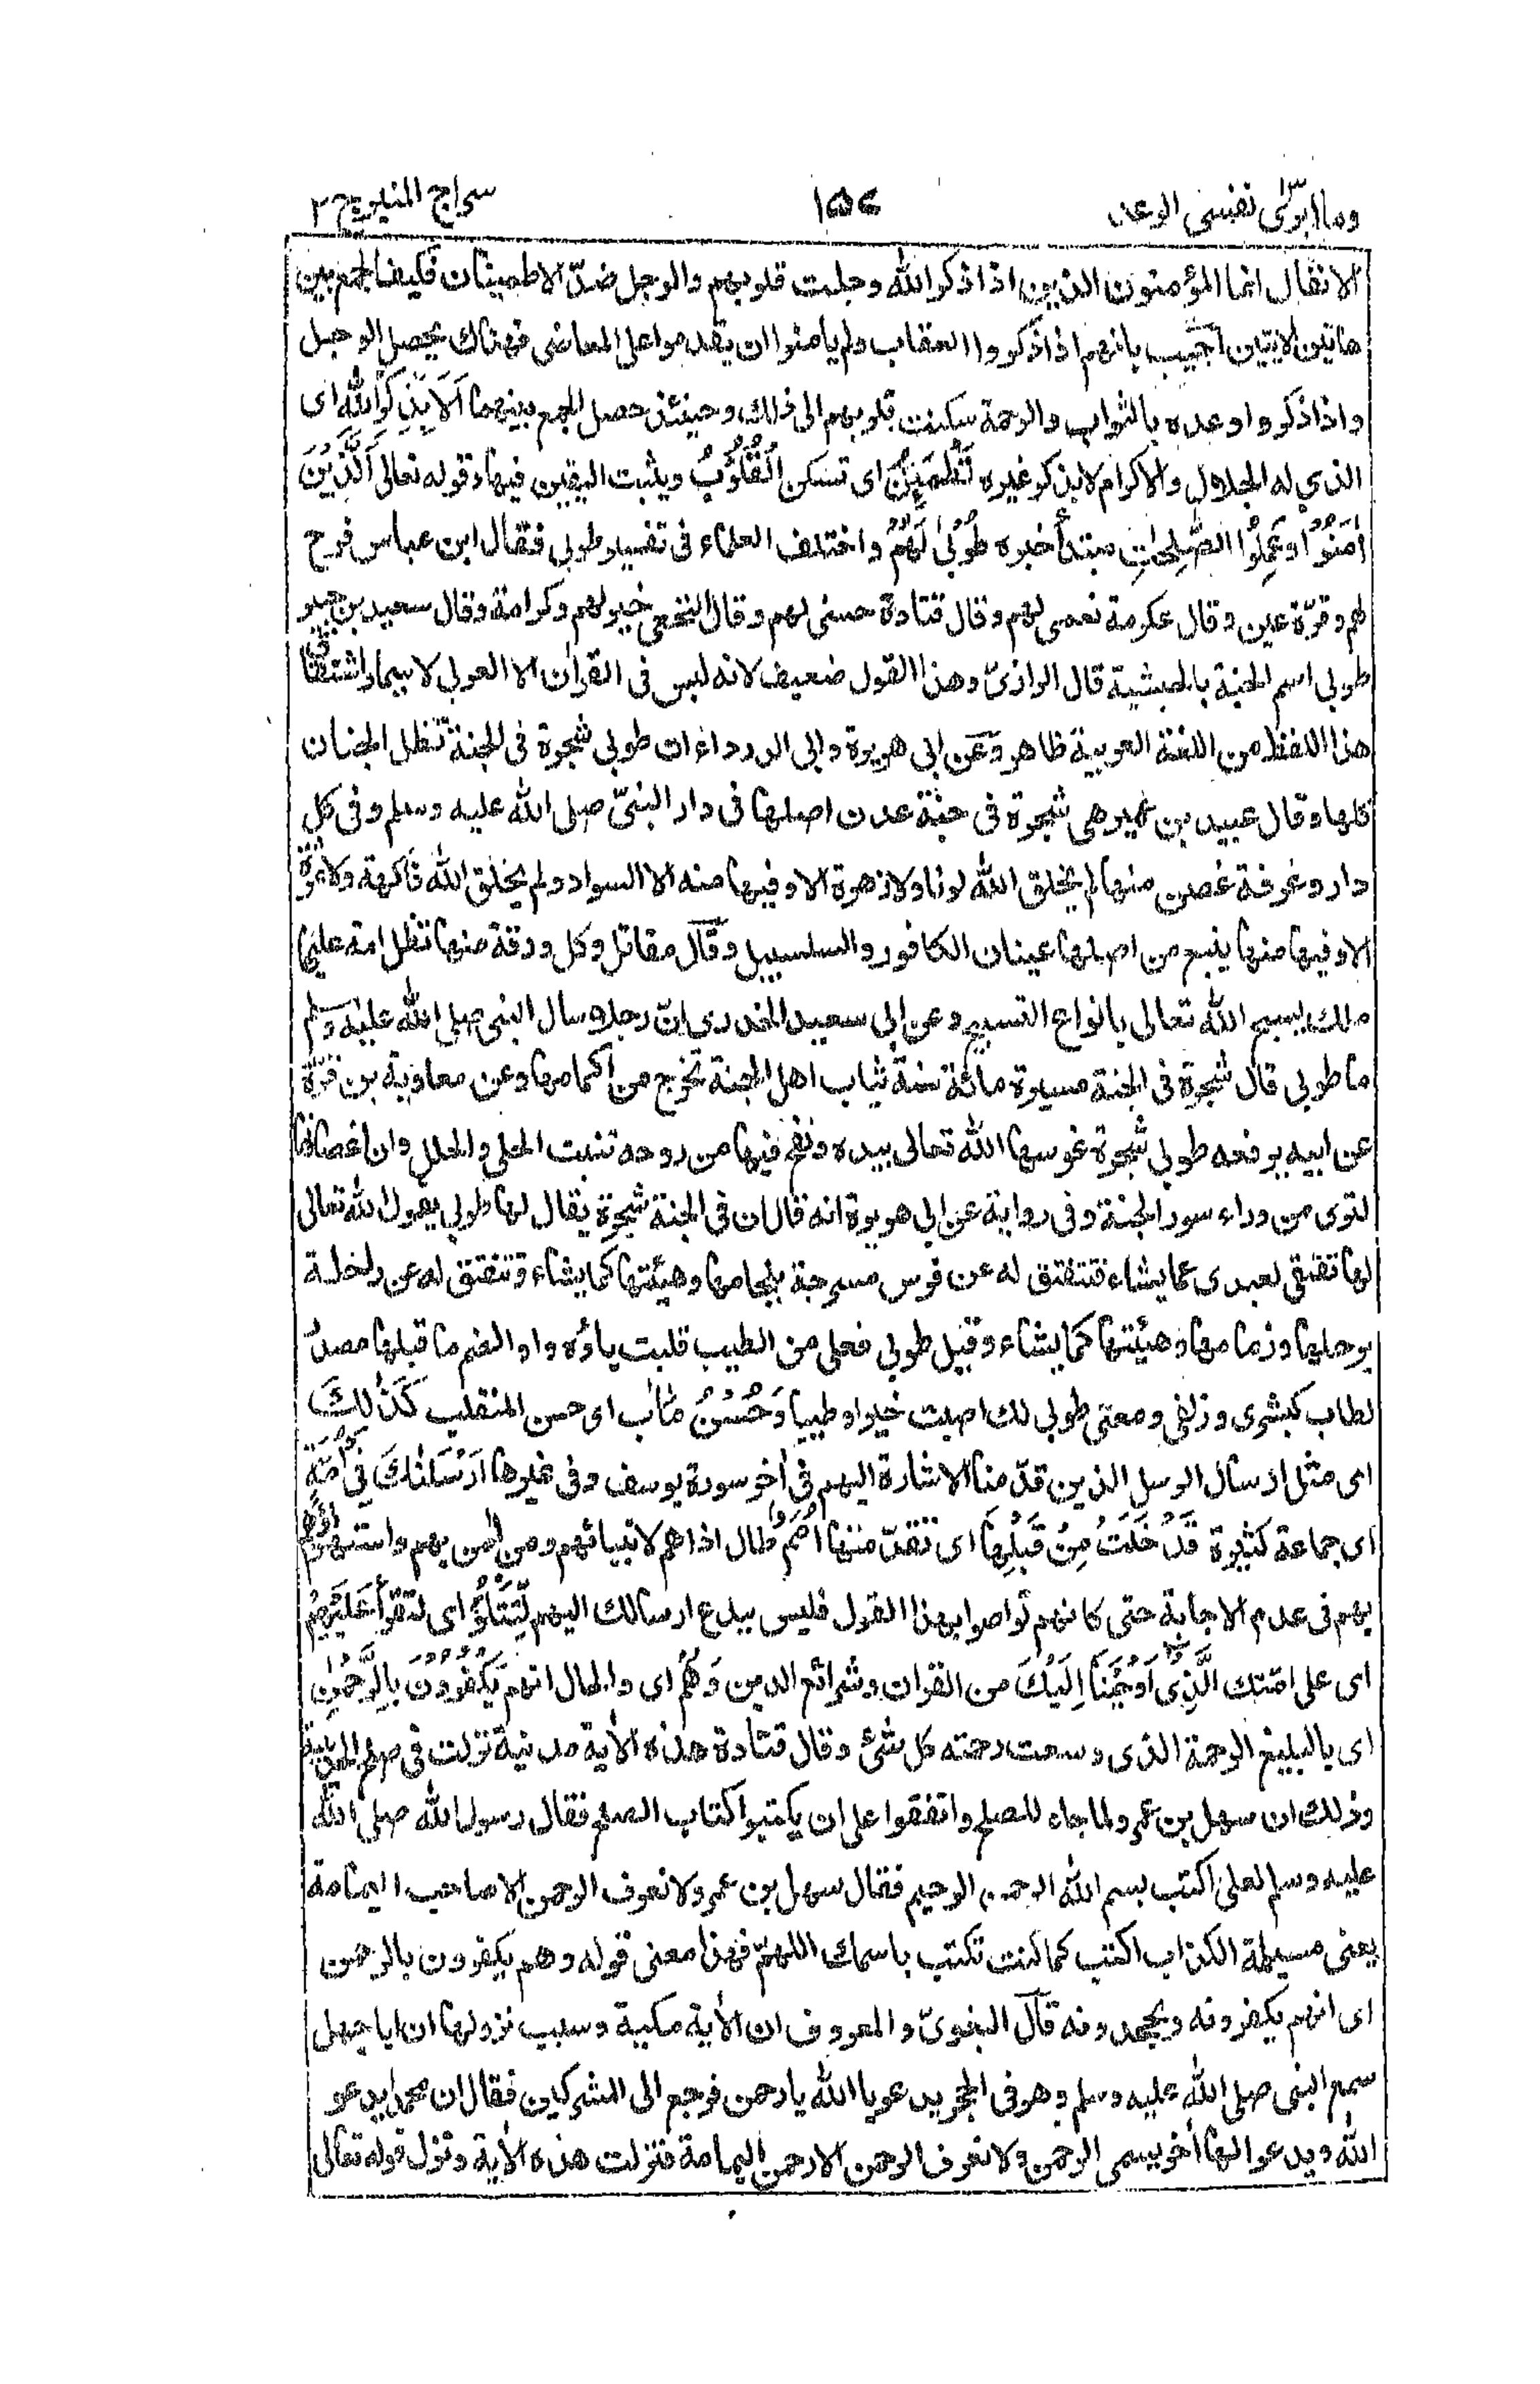 وما ابرئ نفسى ١٣ الرعد
١٥٧
سراج المنير ج ٢
الانفال انما المؤمنون الذين اذا ذكر الله وجلت قلوبهم والوجل ضدّ الاطمينان فكيف الجمع بين
هاتين الايتين اجيب بانهم اذا ذكروا العقاب ولم يامنوا ان يقدموا على المعاصى فهناك يحصل الوجل
واذا ذكروا وعده بالثواب والرحمة سكنت قلوبهم الى ذلك وحينئذ حصل الجمع بينهما اَلَا بِذِكْرِ اللهِ اى
الذي له الجلال والاكرام لا بذكر غيره تَطْمَئِنُّ اى تسكن الْقُلُوْبُ ويثبت اليقين فيها وقوله تعالى اَلَّذِيْنَ
اٰمَنُوْا وَعَمِلُوا الصّٰلِحٰتِ مبتدأ خبره طُوْبٰى لَهُمْ واختلف العلماء فى تفسير طوبى فقال ابن عباس فرح
لهم وقرّة عين وقال عكرمة نعمى لهم وقال قتادة حسنى لهم وقال النخعى خير لهم وكرامة وقال سعيد بن جبير
طوبى اسم الجنة بالحبشية قال الرازىّ وهذا القول ضعيف لانه ليس فى القراٰن الا العربى لا سيما واشتقاق
هذا اللفظ من اللغة العربية ظاهر وعن ابى هريرة وابى الدرداء ان طوبى شجرة فى الجنة تظل الجنان
كلها وقال عبيد بن عمير هى شجرة فى جنّة عدن اصلها فى دار النبىّ صلى الله عليه وسلم وفى كل
دار وغرفة غصن منها لم يخلق الله لونا ولا زهرة الا وفيها منه الا السواد ولم يخلق الله فاكهة ولا ثمرة
الا وفيها منها ينبع من اصلها عينان الكافور والسلسبيل وقال مقاتل وكل ورقة منها تظل امة عليها
ملك يسبح الله تعالى بانواع التسبيح وعن ابى سعيد الخدرى انّ رجلا سال النبى صلى الله عليه وسلم
ما طوبى قال شجرة فى الجنة مسيرة مائة سنة ثياب اهل الجنة تخرج من اكمامها وعن معاوية بن قرّة
عن ابيه يرفعه طوبى شجرة غرسها الله تعالى بيده ونفخ فيها من روحه تنبت الحلى والحلل وان اغصانها
لترى من وراء سور الجنة وفى رواية عن ابى هريرة انه قال ان فى الجنة شجرة يقال لها طوبى يقول الله تعالى
لها تفتقى لعبدى عما يشاء فتتفتق له عن فرس مسرجة بلجامها وهيئتها كما يشاء وتتفتق له عن راحلة
برحلها وزمامها وهيئتها كما يشاء وقيل طوبى فعلى من الطيب قلبت ياؤه واوا لضم ما قبلها مصدر
لطاب كبشرى وزلفى ومعنى طوبى لك اصبت خيرا وطيبا وَحُسْنُ مَاٰب اى حسن المنقلب كَذٰلِكَ
اى مثل ارسال الرسل الذين قدّمنا الاشارة اليهم فى اٰخر سورة يوسف وفى غيرها اَرْسَلْنٰكَ فِيْ اُمَّةٍ
اى جماعة كثيرة قَدْ خَلَتْ مِنْ قَبْلِهَا اى تقدّمتها اُمَمٌ طال اذاهم لانبيائهم ومن اٰمن بهم واستهزاؤهم
بهم فى عدم الاجابة حتى كانهم تواصوا بهذا القول فليس ببدع ارسالك اليهم لِّتَتْلُوَا اى لتقرأ عَلَيْهِمُ
اى على امّتك الَّذِيْٓ اَوْحَيْنَآ اِلَيْكَ من القران وشرائع الدين وَهُمْ اى والحال انهم يَكْفُرُوْنَ بِالرَّحْمٰنِ
اى بالبليغ الرحمة الذى وسعت رحمته كل شئ وقال قتادة هذه الاٰية مدنية نزلت فى صلح الحديبية
وذلك ان سهل بن عمرو لما جاء للصلح واتفقوا على ان يكتبوا كتاب الصلح فقال رسول الله صلى الله
عليه وسلم لعلى اكتب بسم الله الرحمن الرحيم فقال سهل بن عمرو لا نعرف الرحمن الا صاحب اليمامة
يعنى مسيلمة الكذاب اكتب كما كنت تكتب باسمك اللهمّ فهذا معنى قوله وهم يكفرون بالرحمن
اى انهم يكفرونه ويجحدونه قال البغوىّ والمعروف ان الاٰية مكية وسبب نزولها ان ابا جهل
سمع النبى صلى الله عليه وسلم وهو فى الحجر يدعو يا الله يا رحمن فرجع الى المشركين فقال ان محمدا يدعو
الله ويدعو الها اٰخر يسمى الرحمن ولا نعرف الرحمن الا رحمن اليمامة فنزلت هذه الاٰية ونزل قوله تعالى